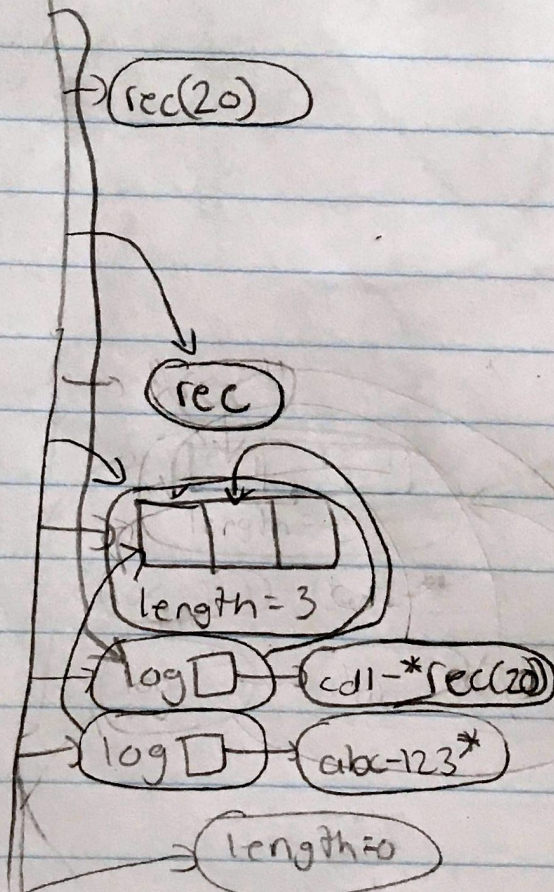 rec(20)
rec
length = 3
log cd1-*rec(20)
log abc-123*
length=0